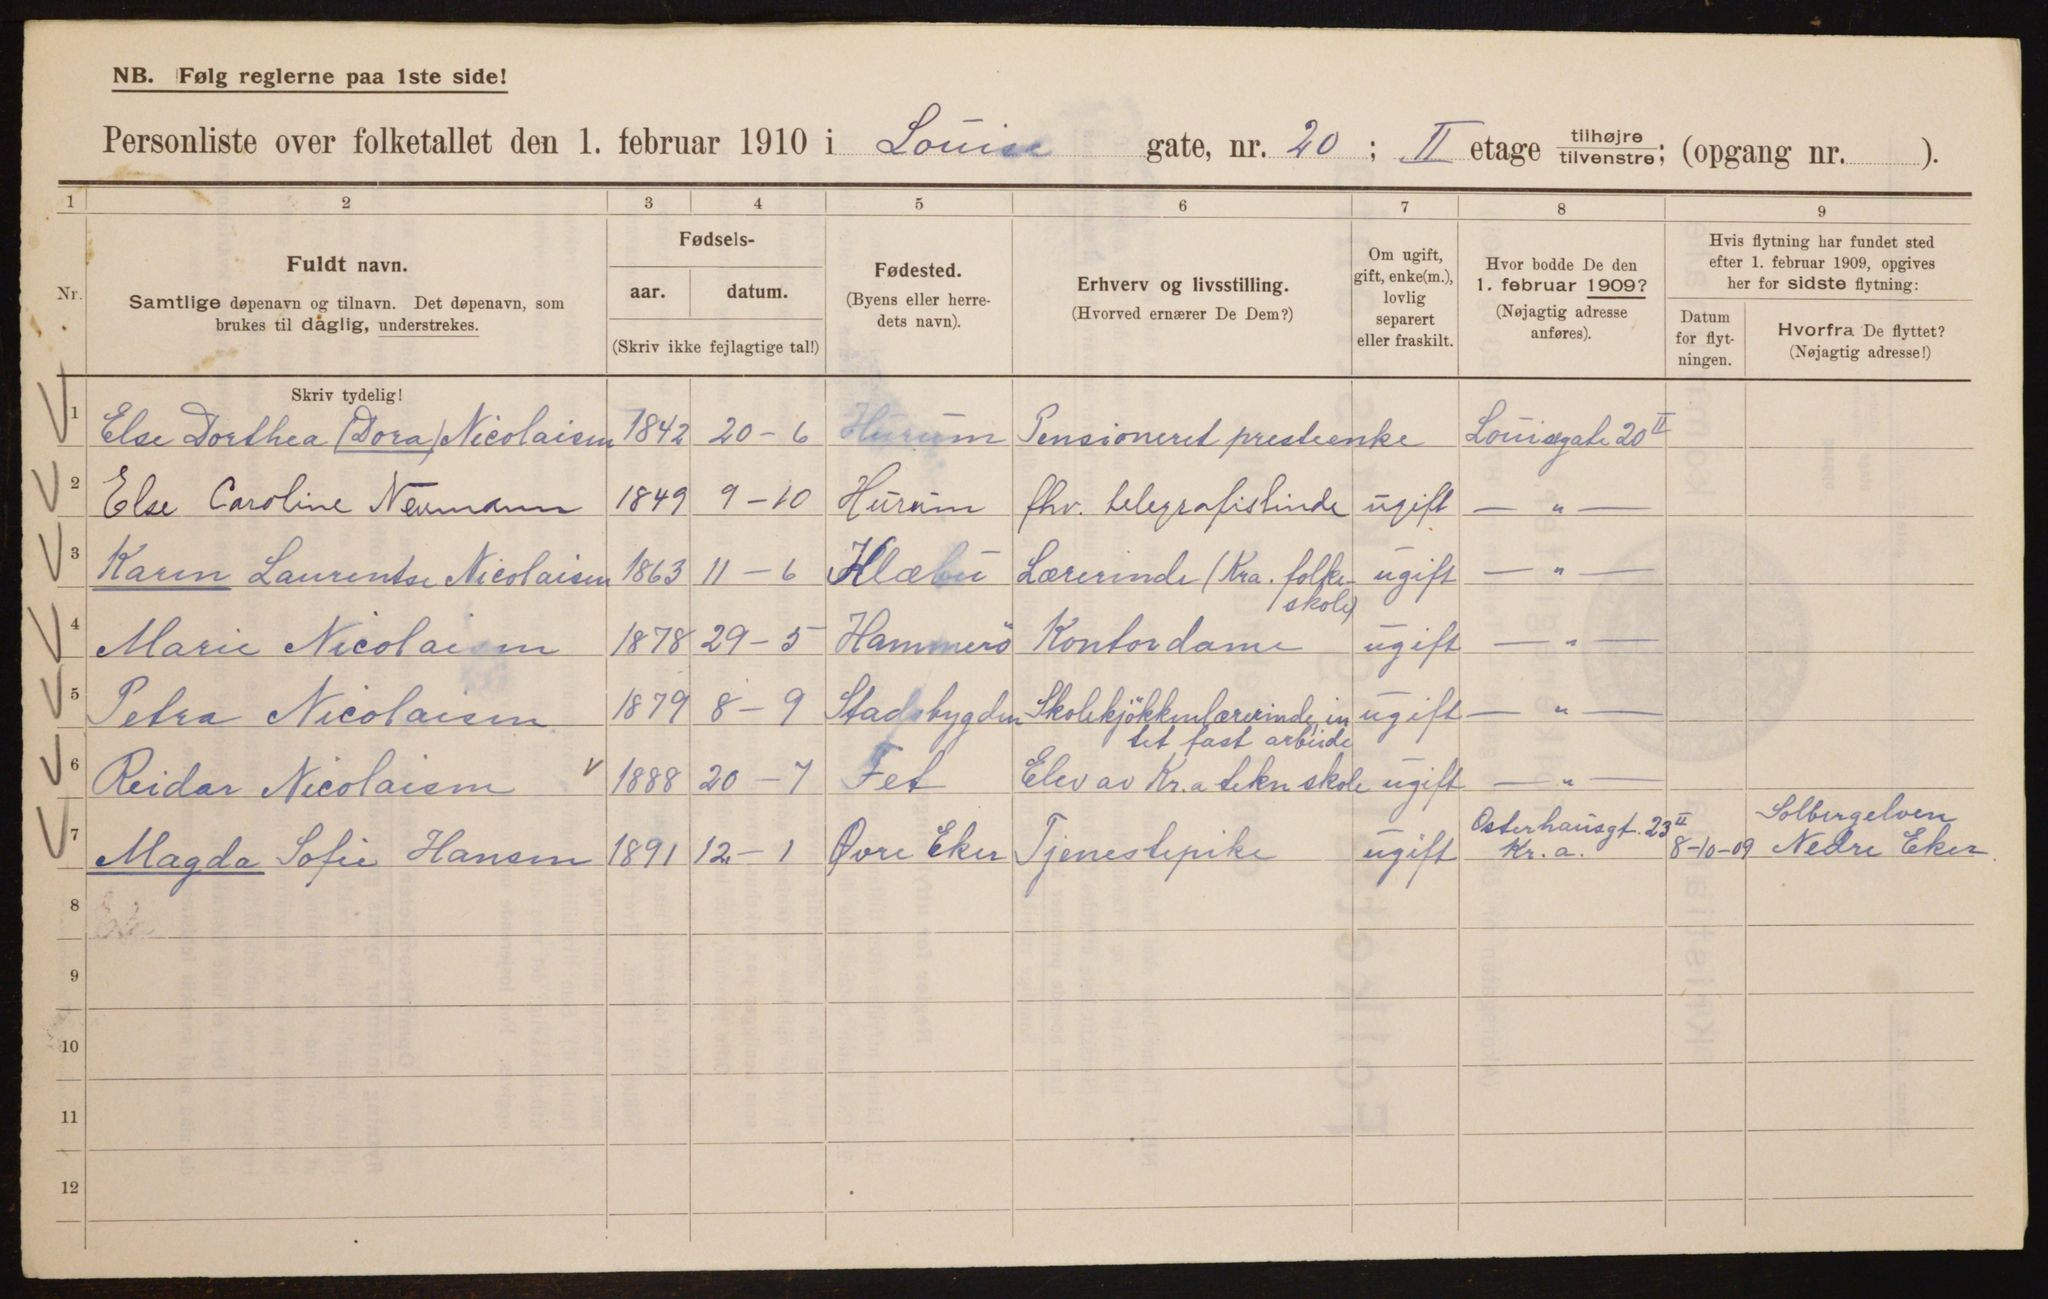 NB. Følg reglerne paa 1ste side!
Personliste over folketallet den 1. februar 1910 i Louise gate, nr. 20; II etage tilhøjre/tilvenstre; (opgang nr. ).
1 2 3 4 5 6 7 8 9
Nr.
Fuldt navn.
Samtlige døpenavn og tilnavn. Det døpenavn, som
brukes til daglig, understrekes.
Fødsels-
aar. datum.
(Skriv ikke fejlagtige tal!)
Fødested.
(Byens eller herre-
dets navn).
Erhverv og livsstilling.
(Hvorved ernærer De Dem?)
Om ugift,
gift, enke(m.),
lovlig
separert
eller fraskilt.
Hvor bodde De den
1. februar 1909?
(Nøjagtig adresse
anføres).
Hvis flytning har fundet sted
efter 1. februar 1909, opgives
her for sidste flytning:
Datum
for flyt-
ningen.
Hvorfra De flyttet?
(Nøjagtig adresse!)
Skriv tydelig!
1 Else Dorthea (Dora) Nicolaisen 1842 20-6 Hurum Pensioneret presteenke Louisegate 20 II
2 Else Caroline Neumann 1849 9-10 Hurum fhv. telegrafistinde ugift — " —
3 Karen Laurentse Nicolaisen 1863 11-6 Klæbu Lærerinde (Kra. folke-
skole) ugift — " —
4 Marie Nicolaisen 1878 29-5 Hammerö Kontordame ugift — " —
5 Petra Nicolaisen 1879 8-9 Stadsbygden Skolekjökkenlærerinde, in
tet fast arbeide ugift — " —
6 Reidar Nicolaisen v 1888 20-7 Fet Elev av Kr.a tekn skole ugift — " —
7 Magda Sofie Hansen 1891 12-1 Øvre Eker Tjenestepike ugift Osterhausgt. 23 II
Kr. a. 8-10-09 Solbergelven
Nedre Eker
8
9
10
11
12